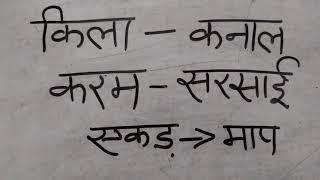 किला - कनाल
करम - सरसाई
एकड़ → माप